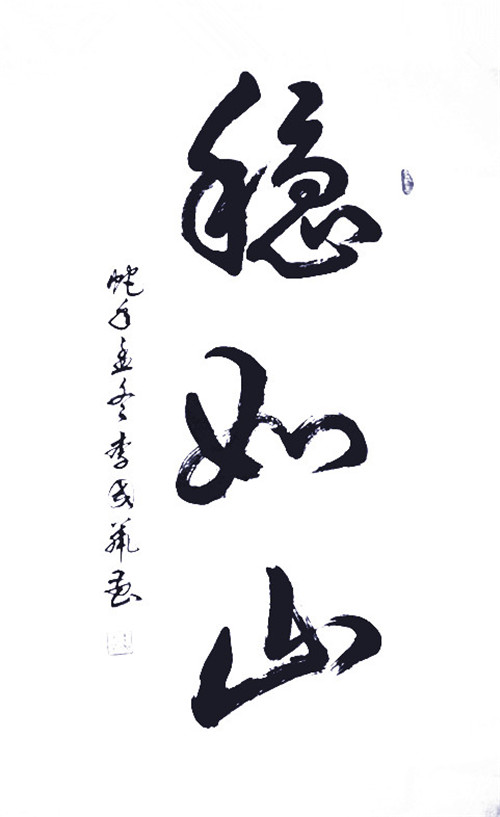 稳如山
蛇年孟冬李成 书